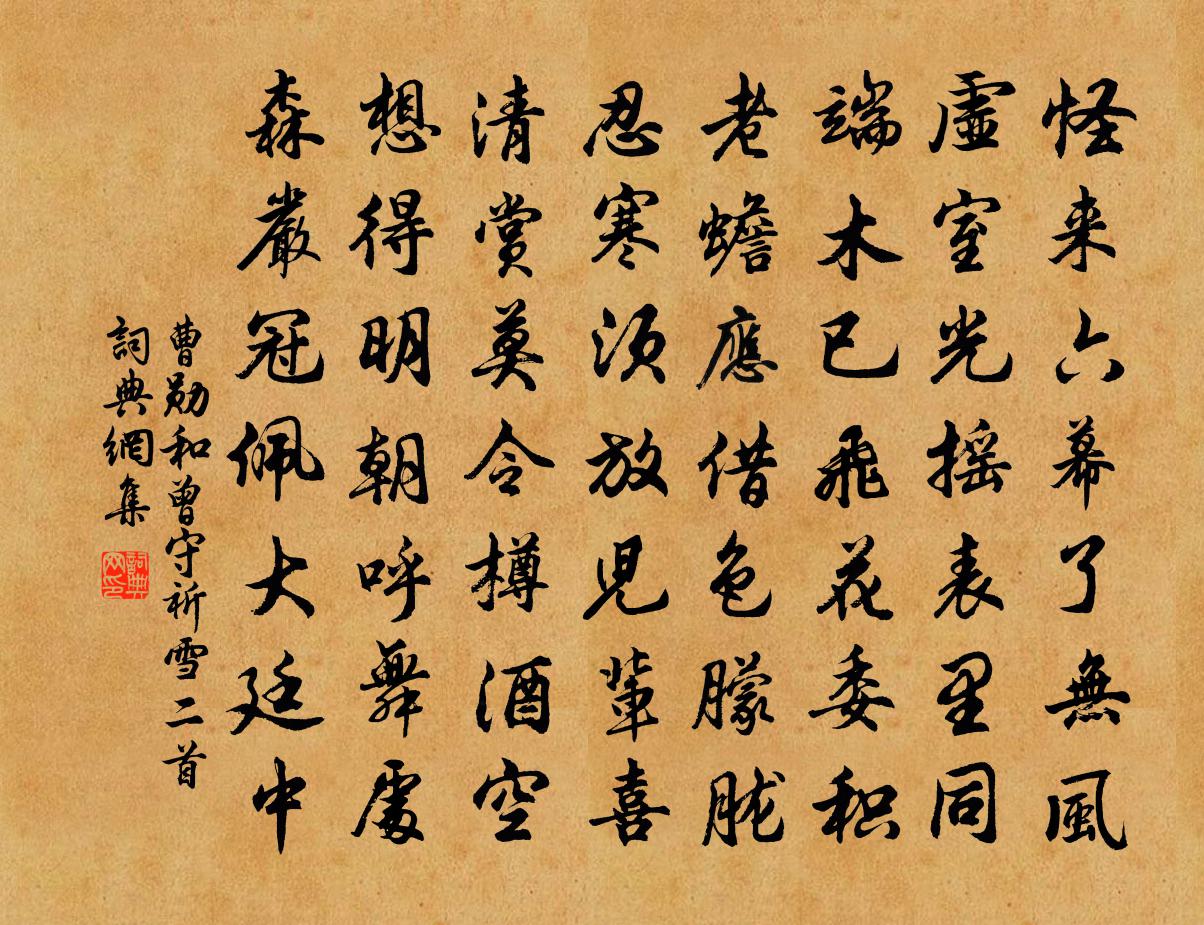 怪来六幕了無風
虛室光摇表里同
端木已飛花委积
老蟾應借色朦胧
忍寒须放児輩喜
清賞莫令樽酒空
想得明朝呼舞處
森嚴冠佩大廷中
曹勋和曾守祈雪二首
詞典網集